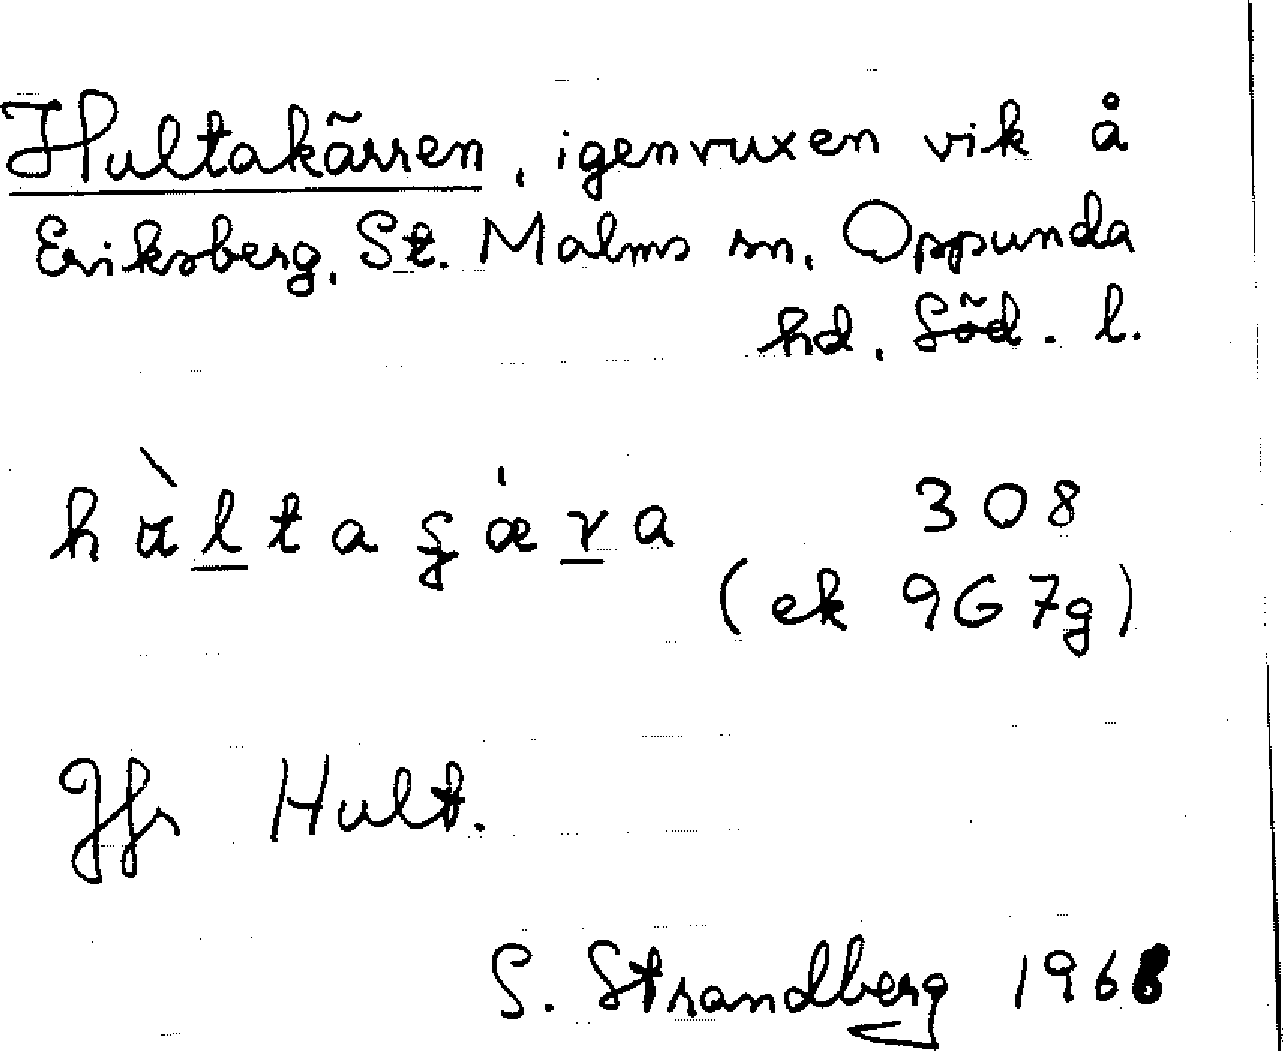 Hultakärren, igenvuxen vik å
Eriksberg, St. Malms sn, Oppunda
hd, Söd. l.
308
(ek 9G7g)
Jfr Hult.
S. Strandberg